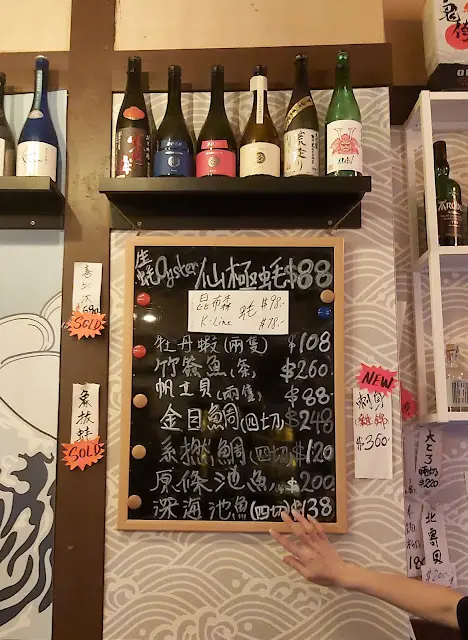 生蠔Oyster 仙極蚝$88
昆布森 蚝 $98.-
K-Line $78.-
牡丹蝦(兩隻) $108
竹簽魚(条) $260.
帆立貝(兩隻) $88
金目鯛(四切) $248
系撚鯛(四切) $120
原條池魚 $200
深海池魚(四切) $138
喜知次
SOLD
象拔蚌
SOLD
NEW
$360
大とろ
$220
北寄貝
$200